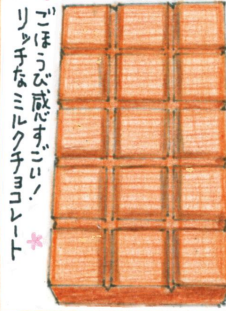 ごほうび感すごい！
リッチなミルクチョコレート